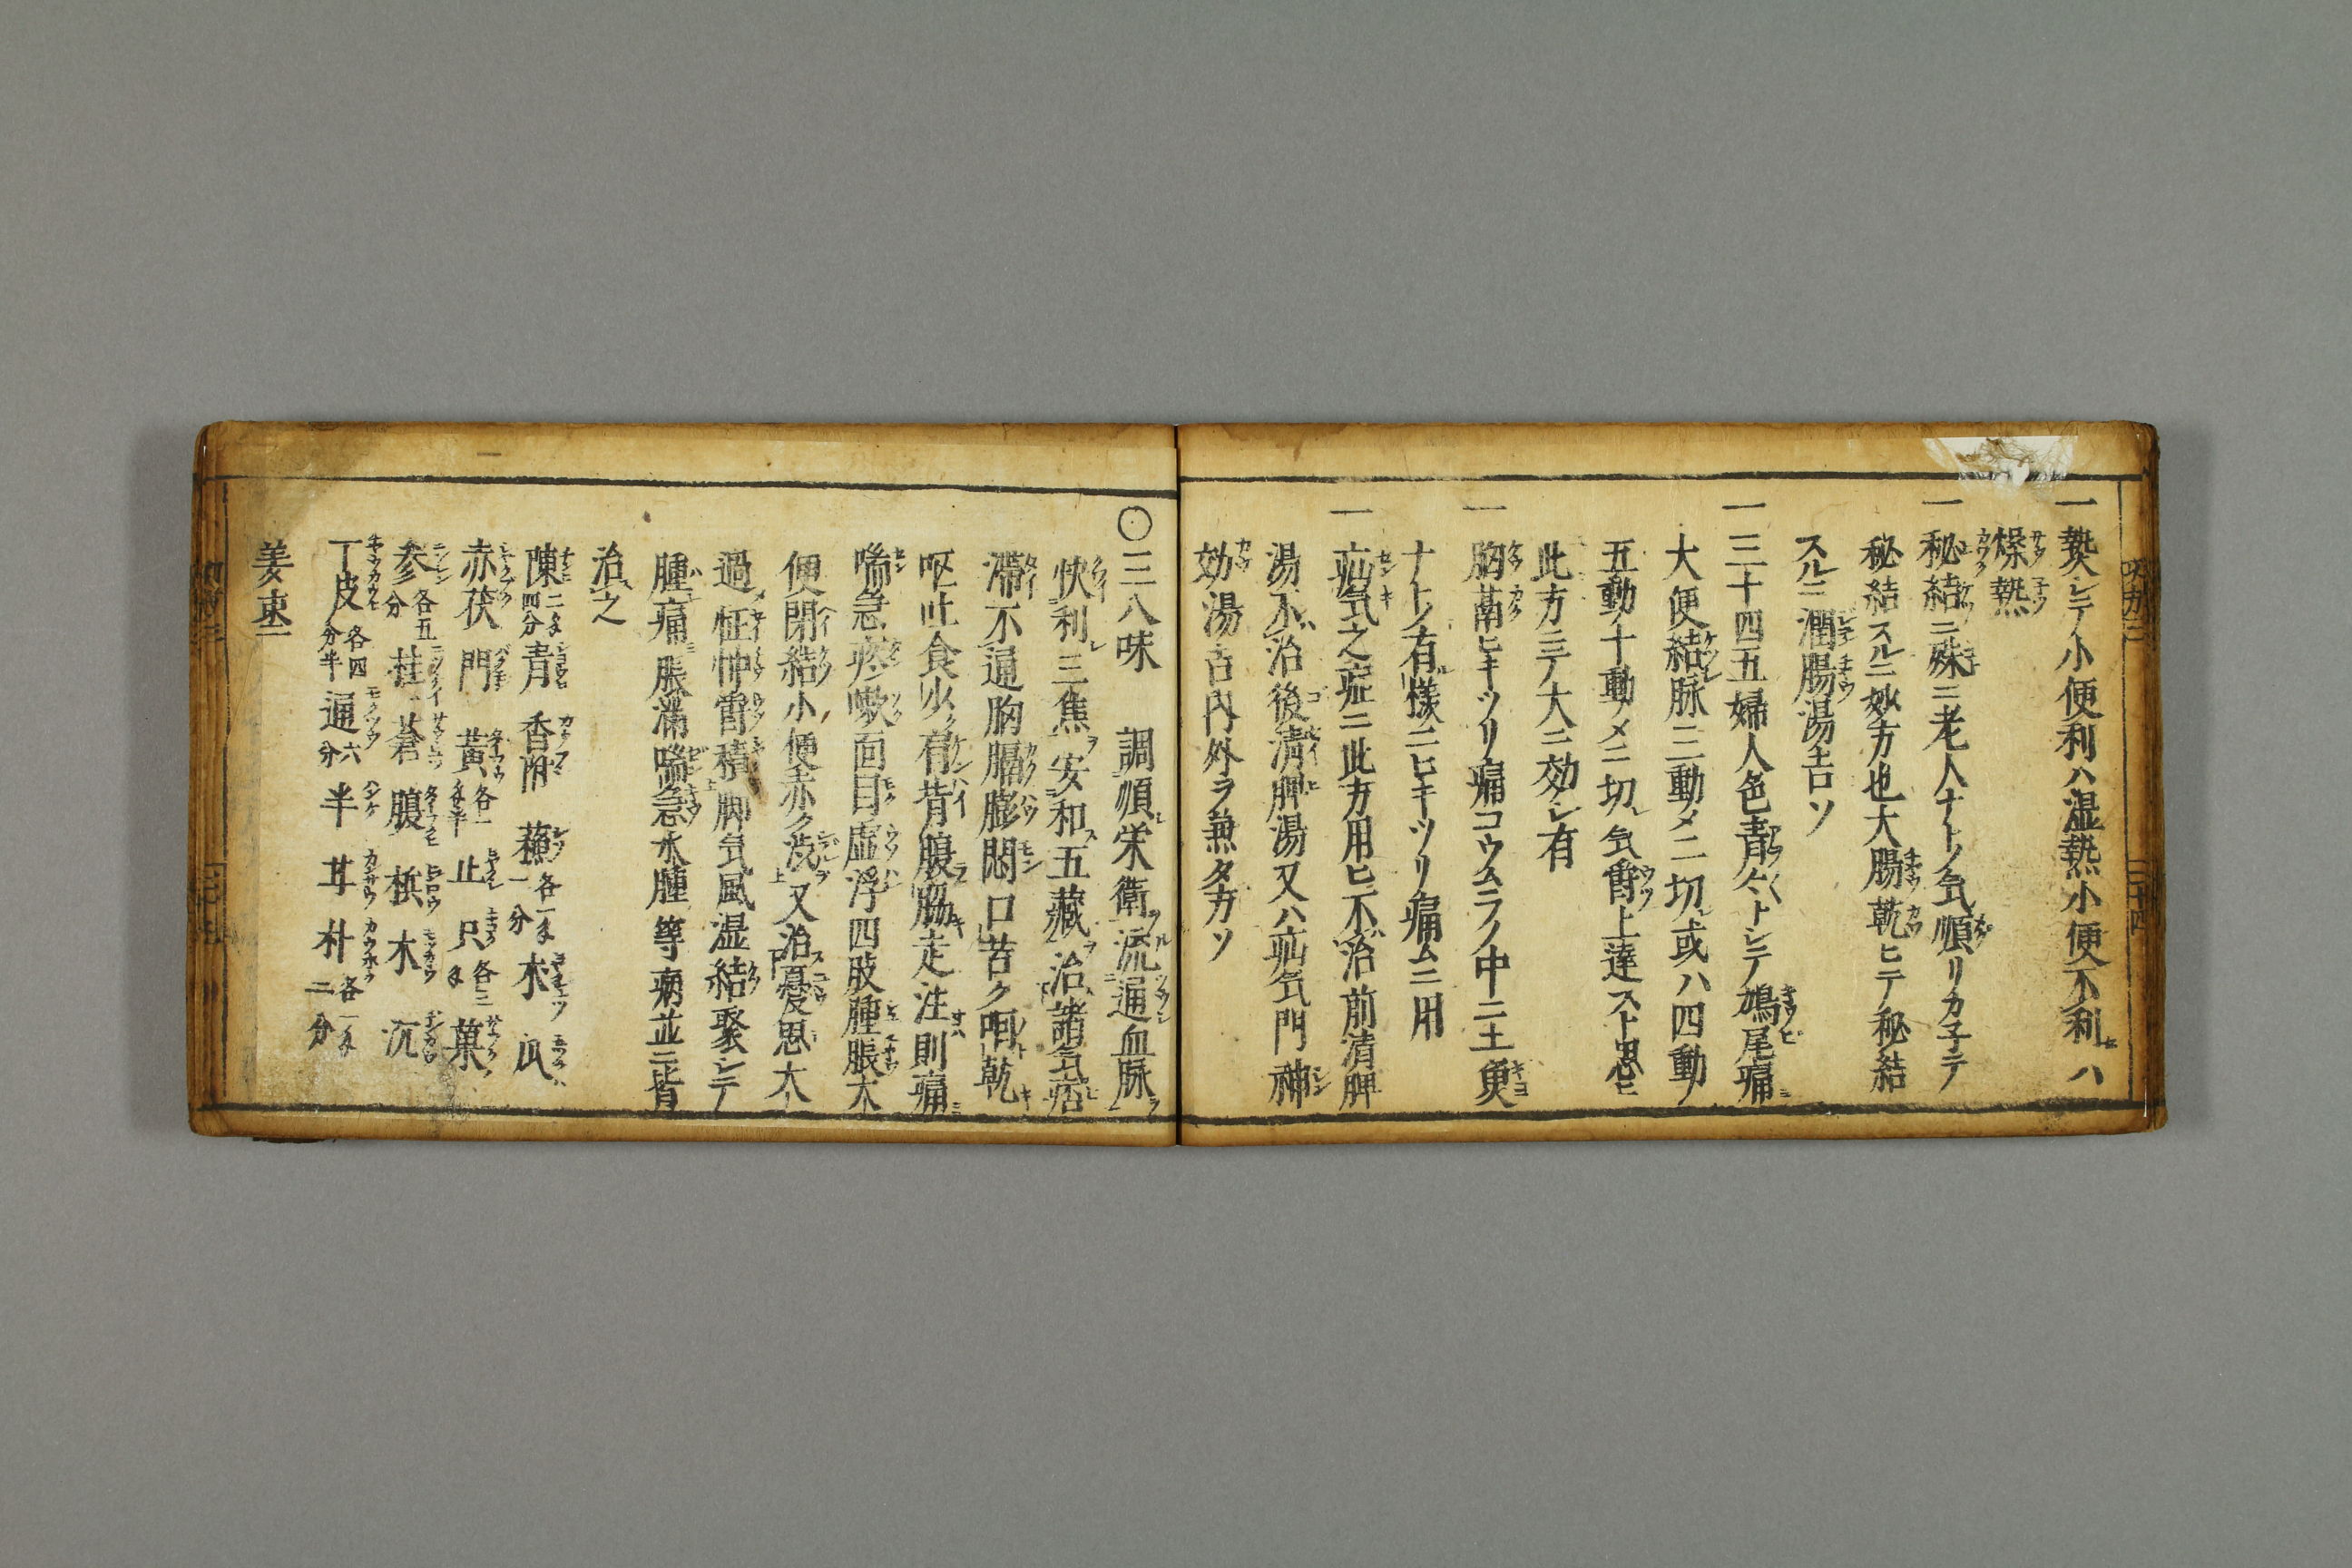 一熱シテ小便利ハ湿熱小便不利ハ
燥熱
一秘結ニ殊ニ老人ナトノ気順リカ子テ
秘結スルニ妙方也大腸乾ヒテ秘結
スルニ潤腸湯吉ソ
一三十四五婦人色青クトシテ鳩尾痛
大便結脉三動メニ切或ハ四動
五動十動メニ切気欝上達スト思ヒ
此方ニテ大ニ効シ有
一胸鬲ヒキツリ痛コウムラノ中ニ土臾
ナトノ有様ニヒキツリ痛ムニ用
一疝気之症ニ此方用ヒ不治前清脾
湯不治後清脾湯又ハ疝気門神
効湯古内外ヲ兼タカソ
〇三八味 調順栄衛流通血脉
快利三焦安和五藏治諸気痞
滞不通胸膈膨悶口苦ク咽乾
呕吐食少有背腹脇走注則痛
喘急痰嗽面目虚浮四肢腫脹大
便閉結小便赤ク渋又治憂思太
過怔忡欝積脚気風湿結聚シテ
腫痛脹満喘急水腫等病並ニ皆
治之
陳 四分 青 香附 蘓 各一 分 木 瓜
赤茯 門 黄 各一 止 只 各三 菓
参 各五分 桂 蒼 腹 梹 木 沉
丁皮 各四分半 通 六分 半 甘 朴 各一 二分
姜 棗